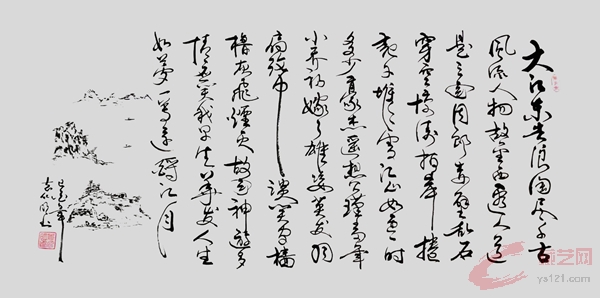 大江东去浪淘尽千古
风流人物故垒西边人道
是三国周郎赤壁乱石
穿空惊涛拍岸卷
起千堆雪江山如画一时
多少豪杰遥想公瑾当年
小乔初嫁了雄姿英发羽
扇纶巾谈笑间樯
橹灰飞烟灭故国神游多
情应笑我早生华发人生
如梦一尊还酹江月
艺网
ys121.com